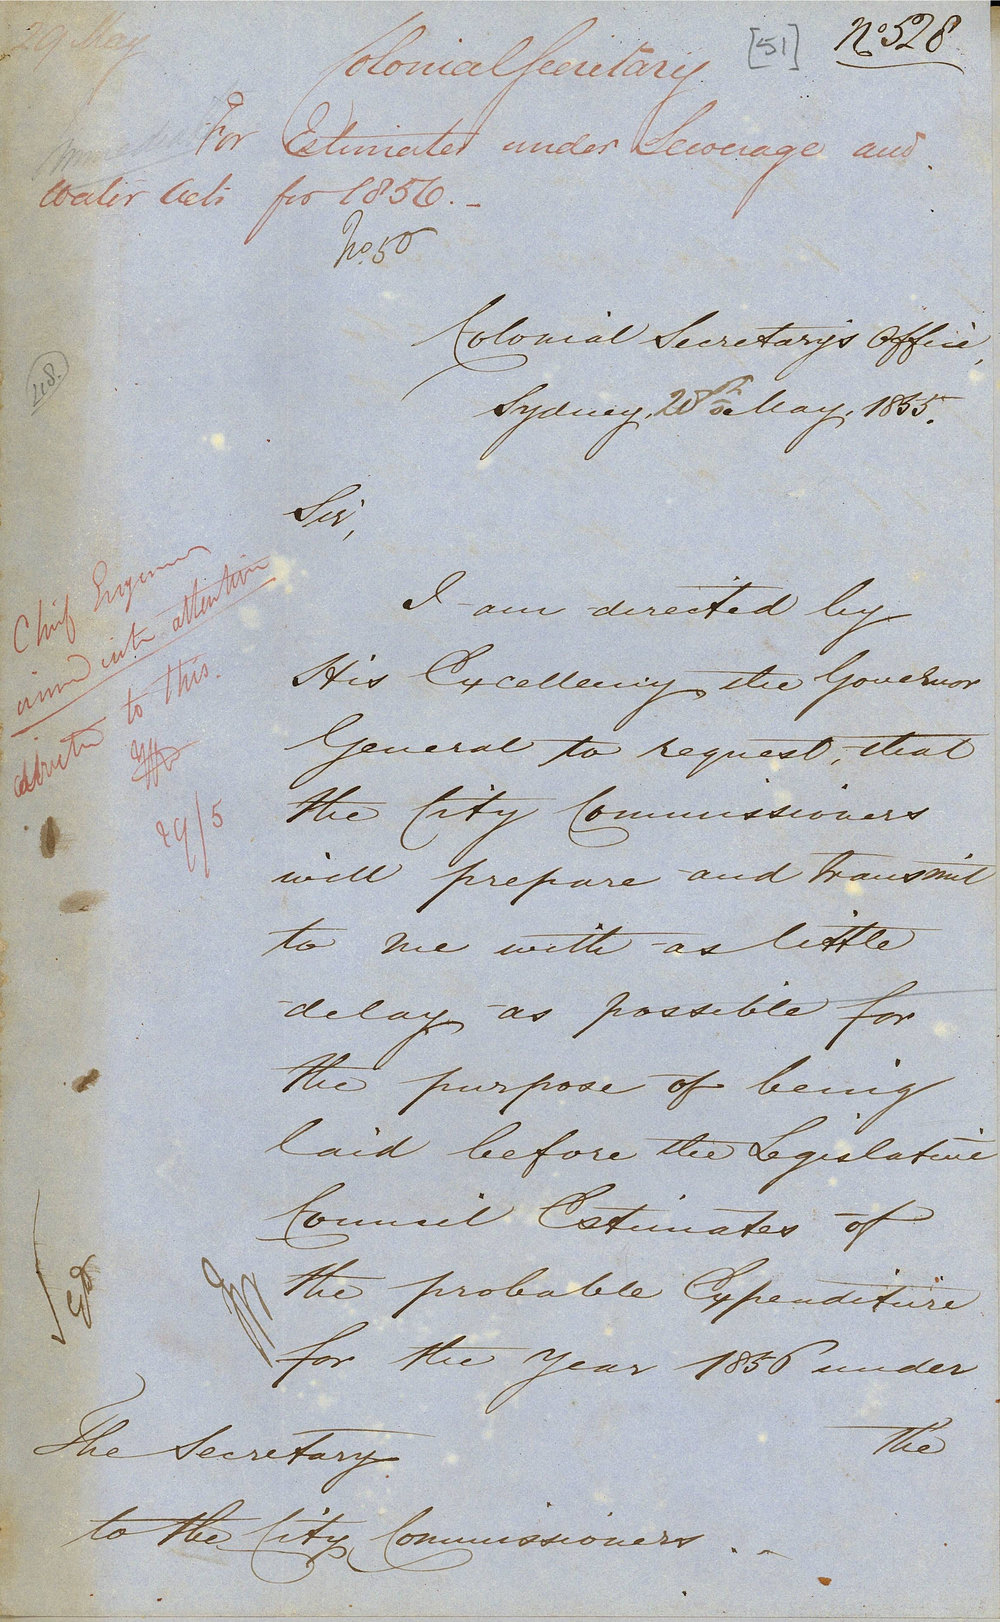 29 May
[51]
No 528
Colonial Secretary
Immediate
For Estimates under Sewerage and
Water Acts for 1856. -
No. 50
Colonial Secretary's Office,
418.
Sydney, 28th May, 1855.
Sir,
I am directed by
His Excellency the Governor
General to request, that
the City Commissioners
will prepare and transmit
to me with as little
delay as possible for
the purpose of being
laid before the Legislative
Council Estimates of
the probable Expenditure
for the Year 1856 under
the
The Secretary
to the City Commissioners. -
Chief Engineer
attention
to this.
29/5